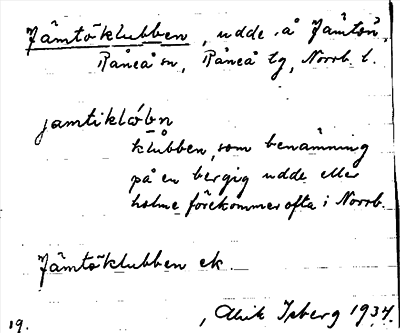 Jämtöklubben, udde å Jämtön,
Råneå sn, Råneå tg, Norrb. l.
jamtiklåbn
klubben, som benämning
på en bergig udde eller
holme förekommer ofta i Norrb.
Jämtöklubben ek.
19. , Alrik Isberg 1934.